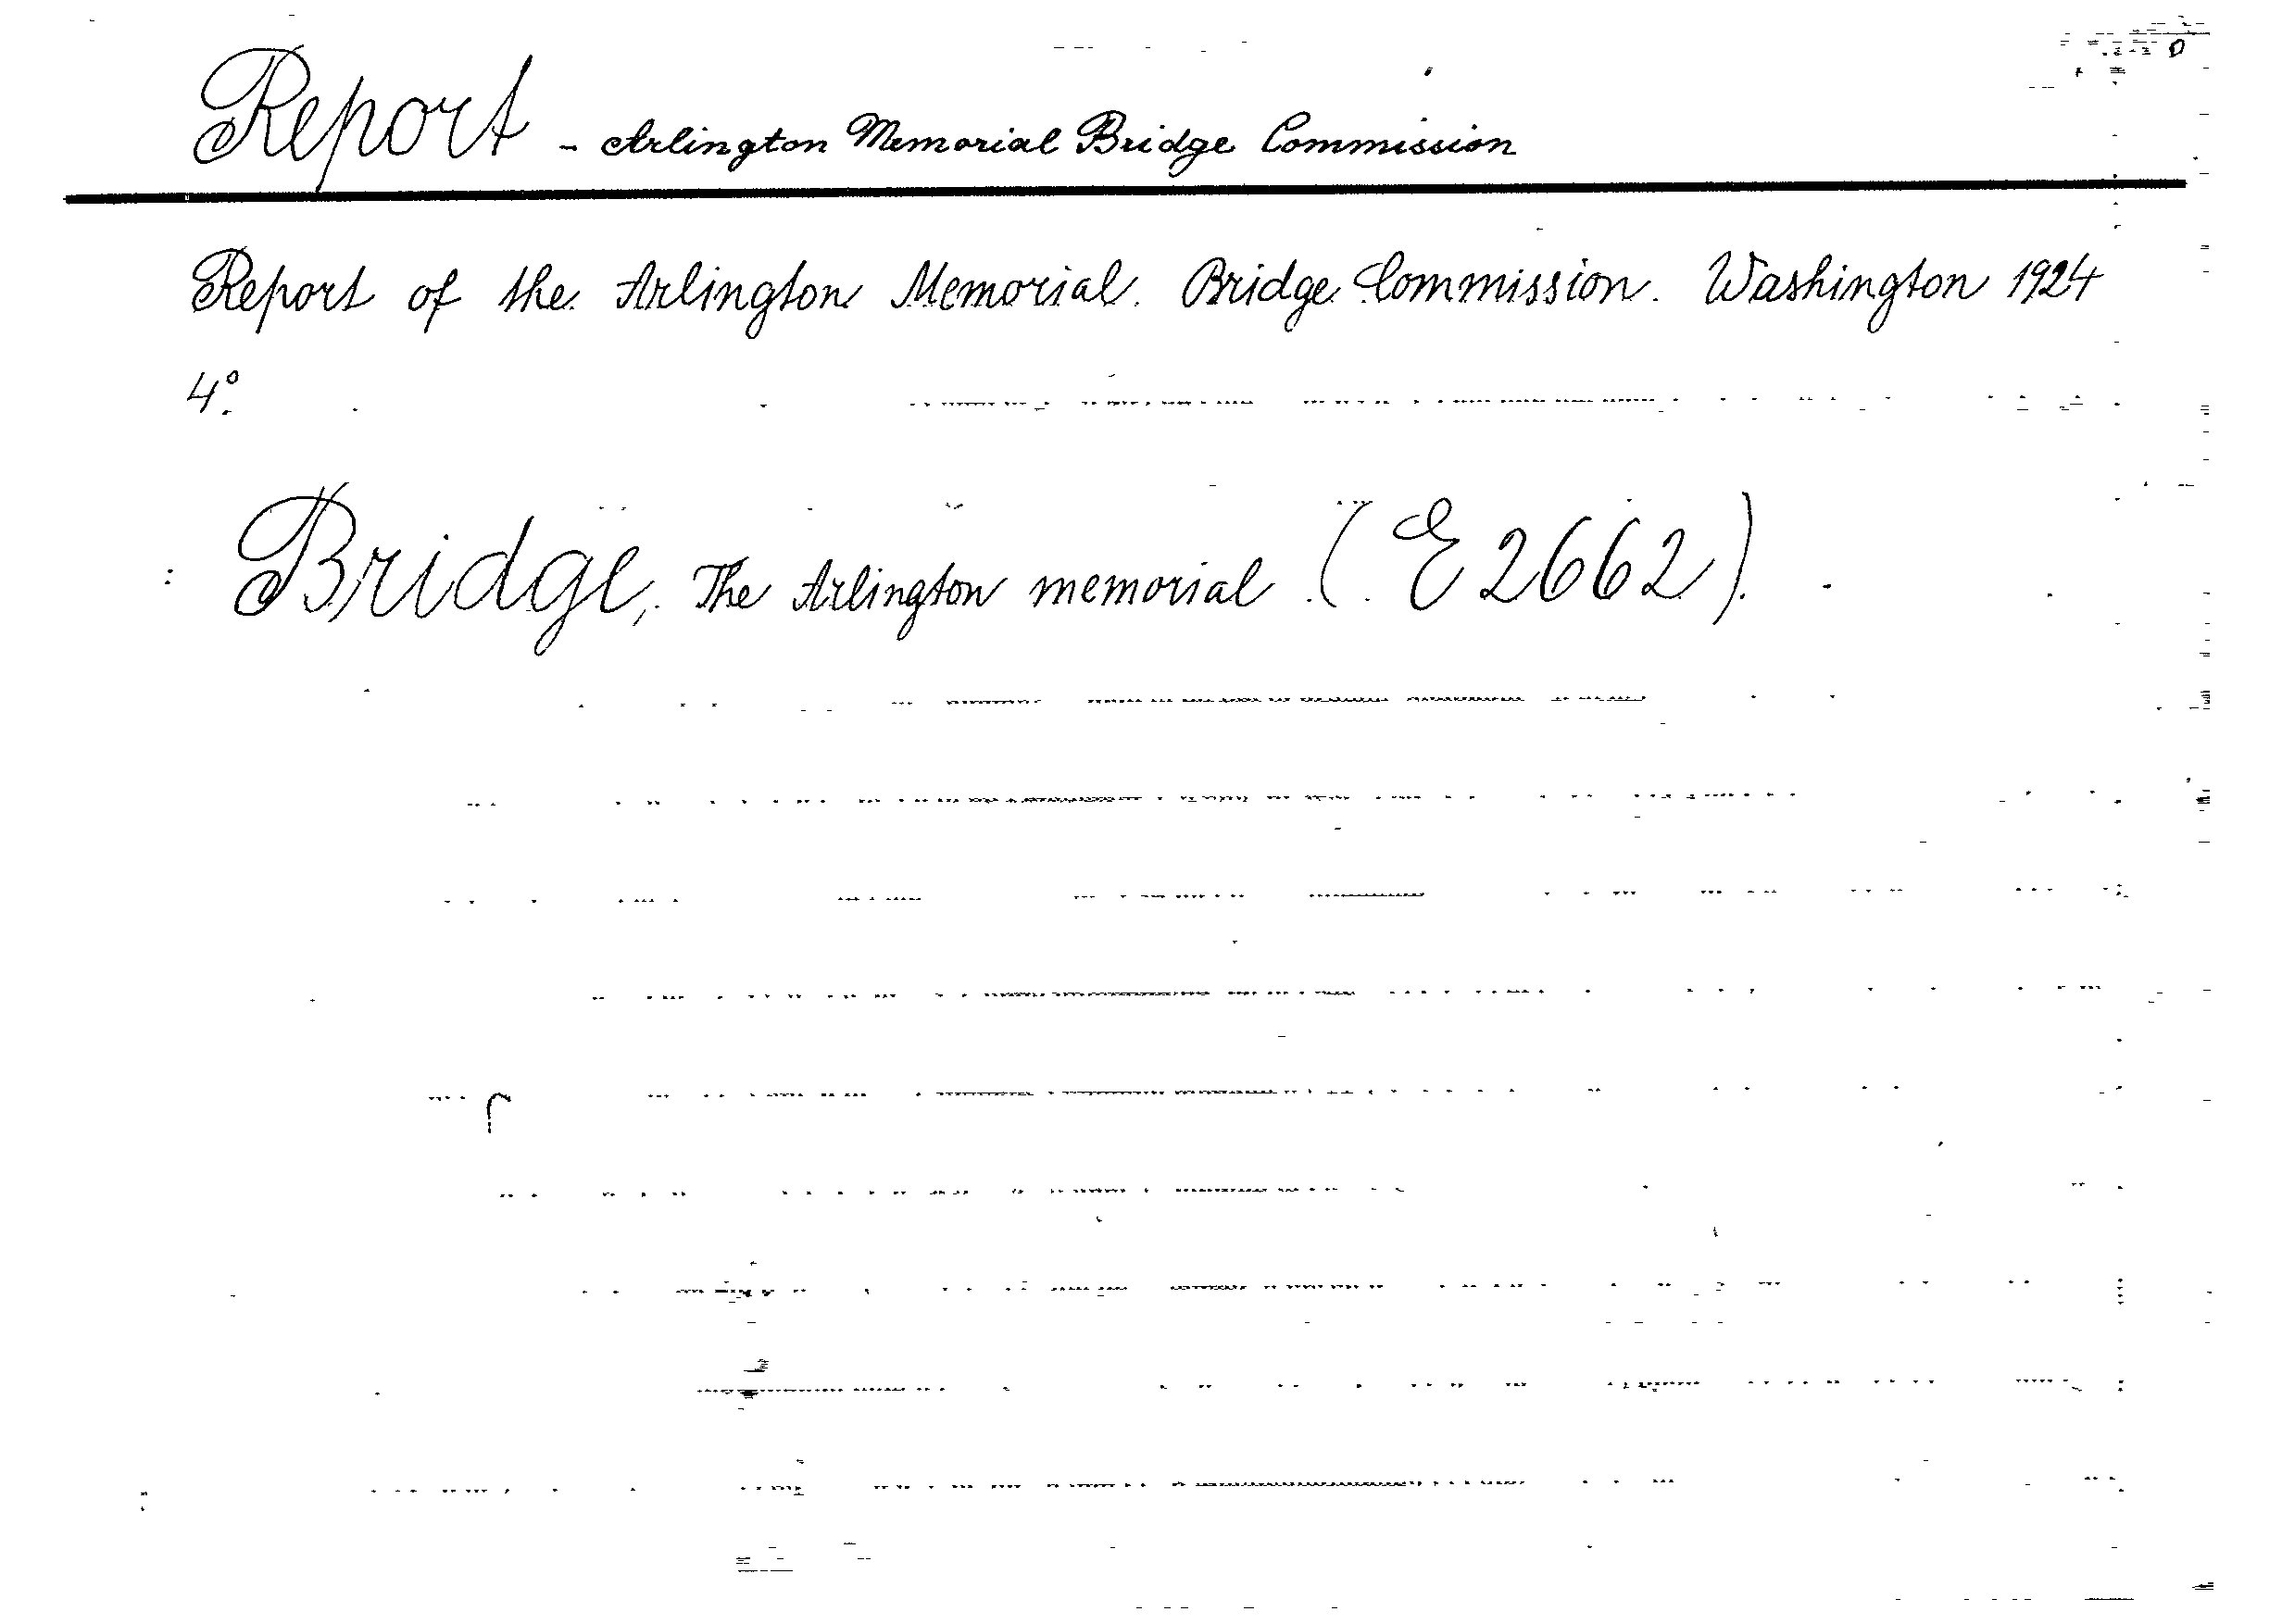 Report - Arlington Memorial Bridge Commission
Report of the Arlington Memorial Bridge Commission. Washington 1924
4°.
Bridge, The Arlington memorial (E2662).